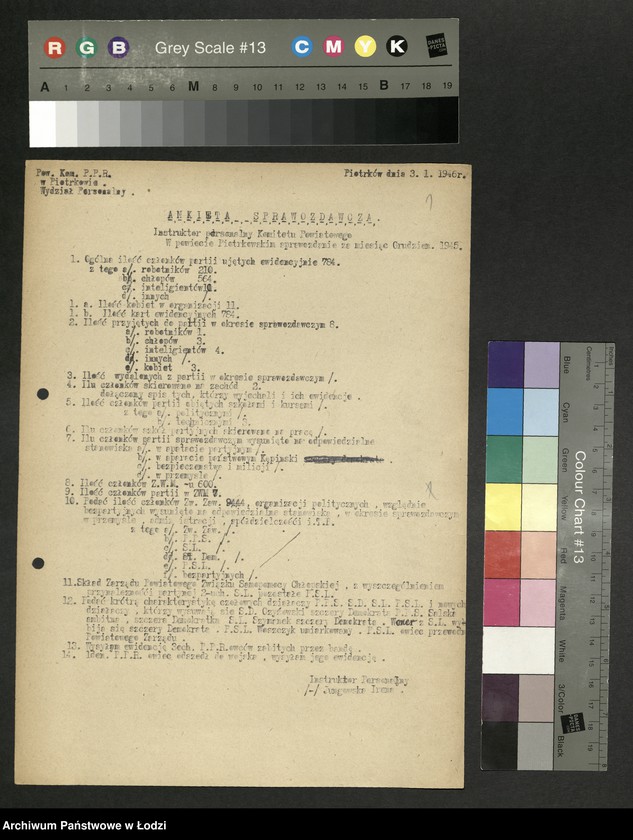 R G B Grey Scale #13 C M Y K DANES PICTA
A 1 2 3 4 5 6 M 8 9 10 11 12 13 14 15 B 17 18 19
Pow. Kom. P.P.R.
w Piotrkowie .
Wydział Personalny .
Piotrków dnia 3. 1. 1946r.
ANKIETA SPRAWOZDAWCZA.
Instruktor personalny Komitetu Powiatowego
W powiecie Piotrkowskim sprawozdanie za miesiąc Grudzień. 1945.
1. Ogólna ilość członków partii ujętych ewidencyjnie 784.
z tego a/. robotników 210.
b/. chłopów 564.
c/. inteligientów 10.
d/. innych /.
1. a. Ilość kobiet w organizacji 11.
1. b. Ilość kart ewidencyjnych 784.
2. Ilość przyjętych do partii w okresie sprawozdawczym 8.
a/. robotników 1.
b/. chłopów 3.
c/. inteligientów 4.
d/. innych /.
e/. kobiet 3.
3. Ilość wydalonych z partii w okresie sprawozdawczym /.
4. Ilu członków skierowano na zachód 2.
dołączamy spis tych, którzy wyjechali i ich ewidencje .
5. Ilość członków partii objętych szkołami i kursami /.
z tego a/. politycznymi /.
b/. technicznymi
6. Ilu członków szkół partyjnych skierowano na pracę /.
7. Ilu członków partii sprawozdawczym wysunięto na odpowiedzialne
stanowiska a/. w aparacie partyjnym /.
b/. w aparacie państwowym Kępinski
c/. bezpieczeństwo i milicji /.
d/. w przemyśle /.
8. Ilość członków Z.W.M. -u 600.
9. Ilość członków partii w ZWM 7.
10. Podać ilość członków Zw. Zaw. organizacji politycznych , względnie
bezpartyjnych wysunięto na odpowiedzialne stanowiska , w okresie sprawozdawczym
w przemyśle , spółdzielczości i.t.d.
z tego a/. Zw. Zaw. /.
b/. P.P.S. /.
c/. S.L. /.
d/. St. Dem. /.
e/. P.S.L. /.
f/. bezpartyjnych /.
11. Skład Zarządu Powiatowego Związku Samopomocy Chłopskiej , z wyszczególnieniem
przynależności partyjnej 3-uch. S.L. pozostałe P.S.L.
12. Podać krótką charakterystykę czołowych działaczy P.P.S. S.D. S.L. P.S.L. i nowych
działaczy , którzy wysuwają się S.D. szczery Demokrata P.P.S.
ambitna , szczera Demokratka S.L. Szymanek szczery Demokrata .
szczery Demokrata . P.S.L. umiarkowany . P.S.L.
Powiatowego Zarządu .
13. Wysyłam ewidencję 3ech. P.P.R.owców zabitych przez bandę .
14. P.P.R. owiec odszedł do wojska , wysyłam jego ewidencję .
Instruktor Personalny
/-/ Irena .
Colour Chart #13
Blue Cyan Green Yellow Red Magenta White 3/Color Black
Centimetres Inches
DANES PICTA
Archiwum Państwowe w Łodzi